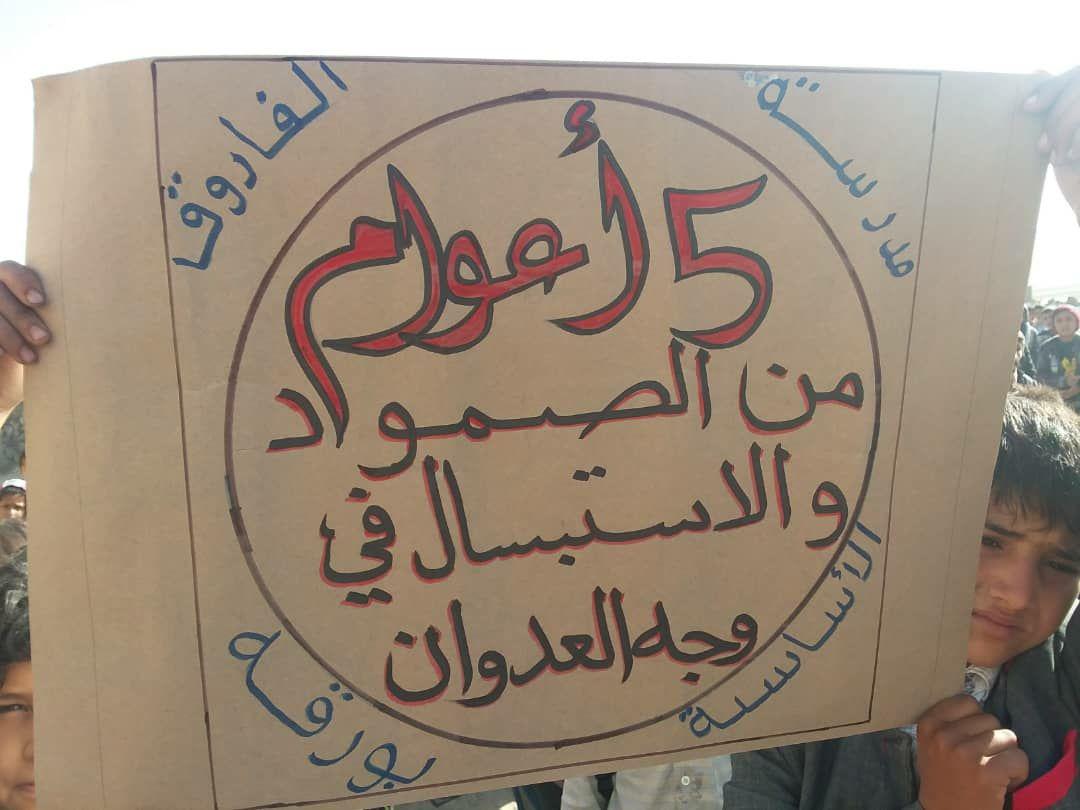 مدرسة
الفاروق
5 أعوام
من الصمود
والاستبسال في
وجه العدوان
الأساسية
بورقه